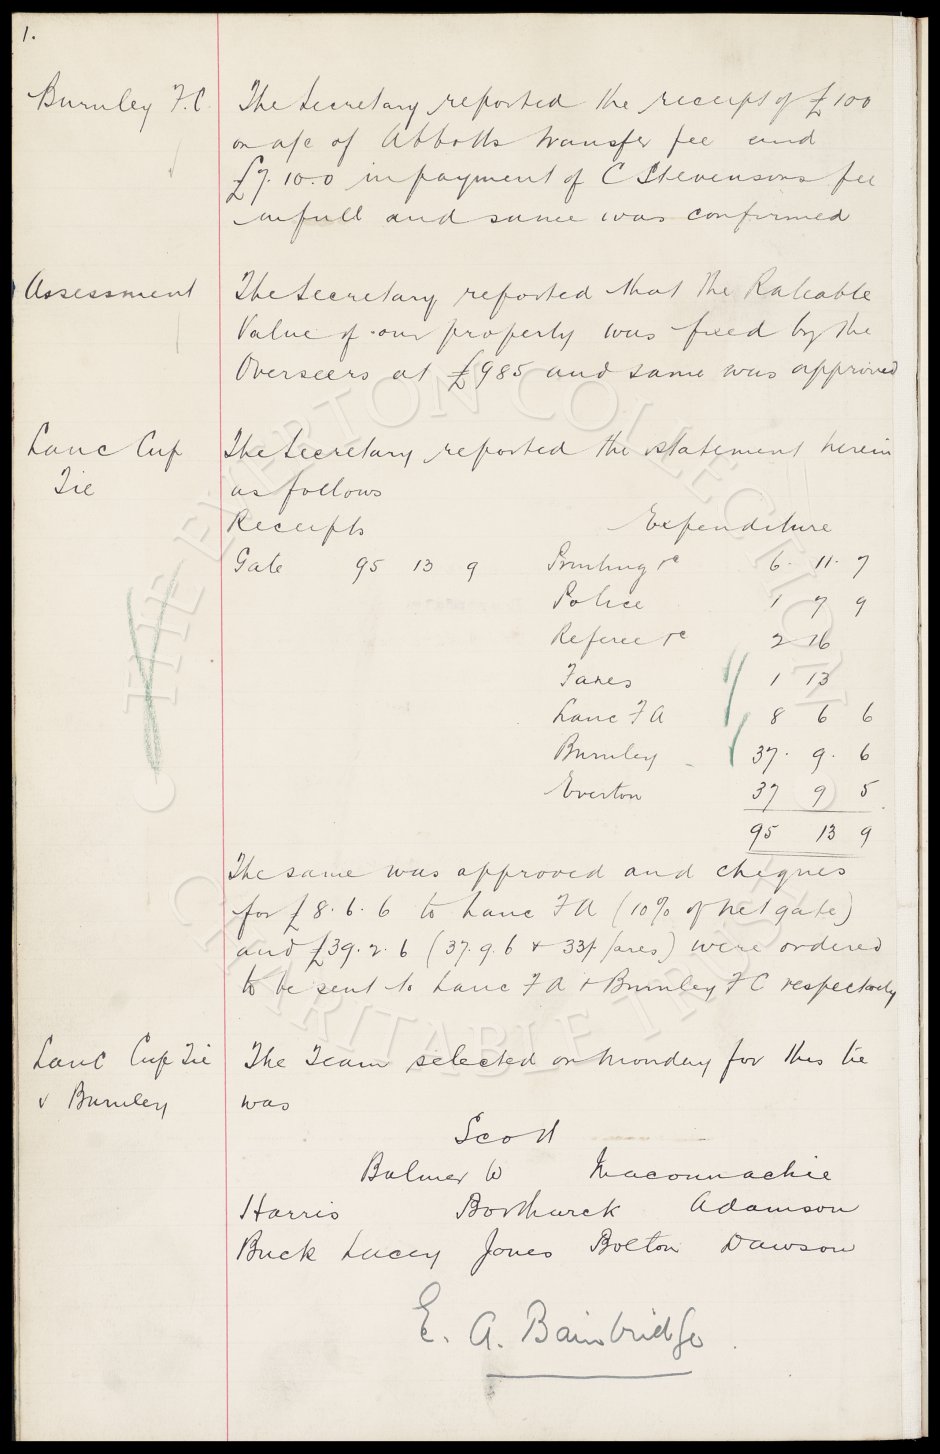 1.
Burnley F.C. The Secretary reported the receipt of £100
on a/c of Abbotts transfer fee and
£7.10.0 in payment of C Stevensons fee
in full and same was confirmed
Assessment The Secretary reported that the Rateable
Value of our property was fixed by the
Overseers at £985 and same was approved
Lanc Cup The Secretary reported the statement herein
Tie as follows
Receipts Expenditure
Gate 95 13 9 Printing &c 6. 11. 7
Police 1 7 9
Referee &c 2 16
Fares 1 13
Lanc F A 8 6 6
Burnley 37. 9. 6
Everton 37 9 5
95 13 9
The same was approved and cheques
for £8.6.6 to Lanc F A (10% of net gate)
and £39.2.6 (37.9.6 + 33/- fares) were ordered
to be sent to Lanc F A & Burnley F C respectively
Lanc Cup Tie The Team selected on Monday for this tie
v Burnley was
Scott
Balmer W Maconnachie
Harris Borthwick Adamson
Buck Lacey Jones Bolton Dawson
E. A. Bainbridge
THE EVERTON COLLECTION
CHARITABLE TRUST